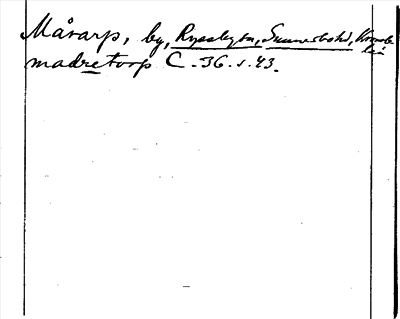 Mårarp, by, Ryssby sn, Sunnerbohd, Kronob. län
madretorp C-36. s. 43.